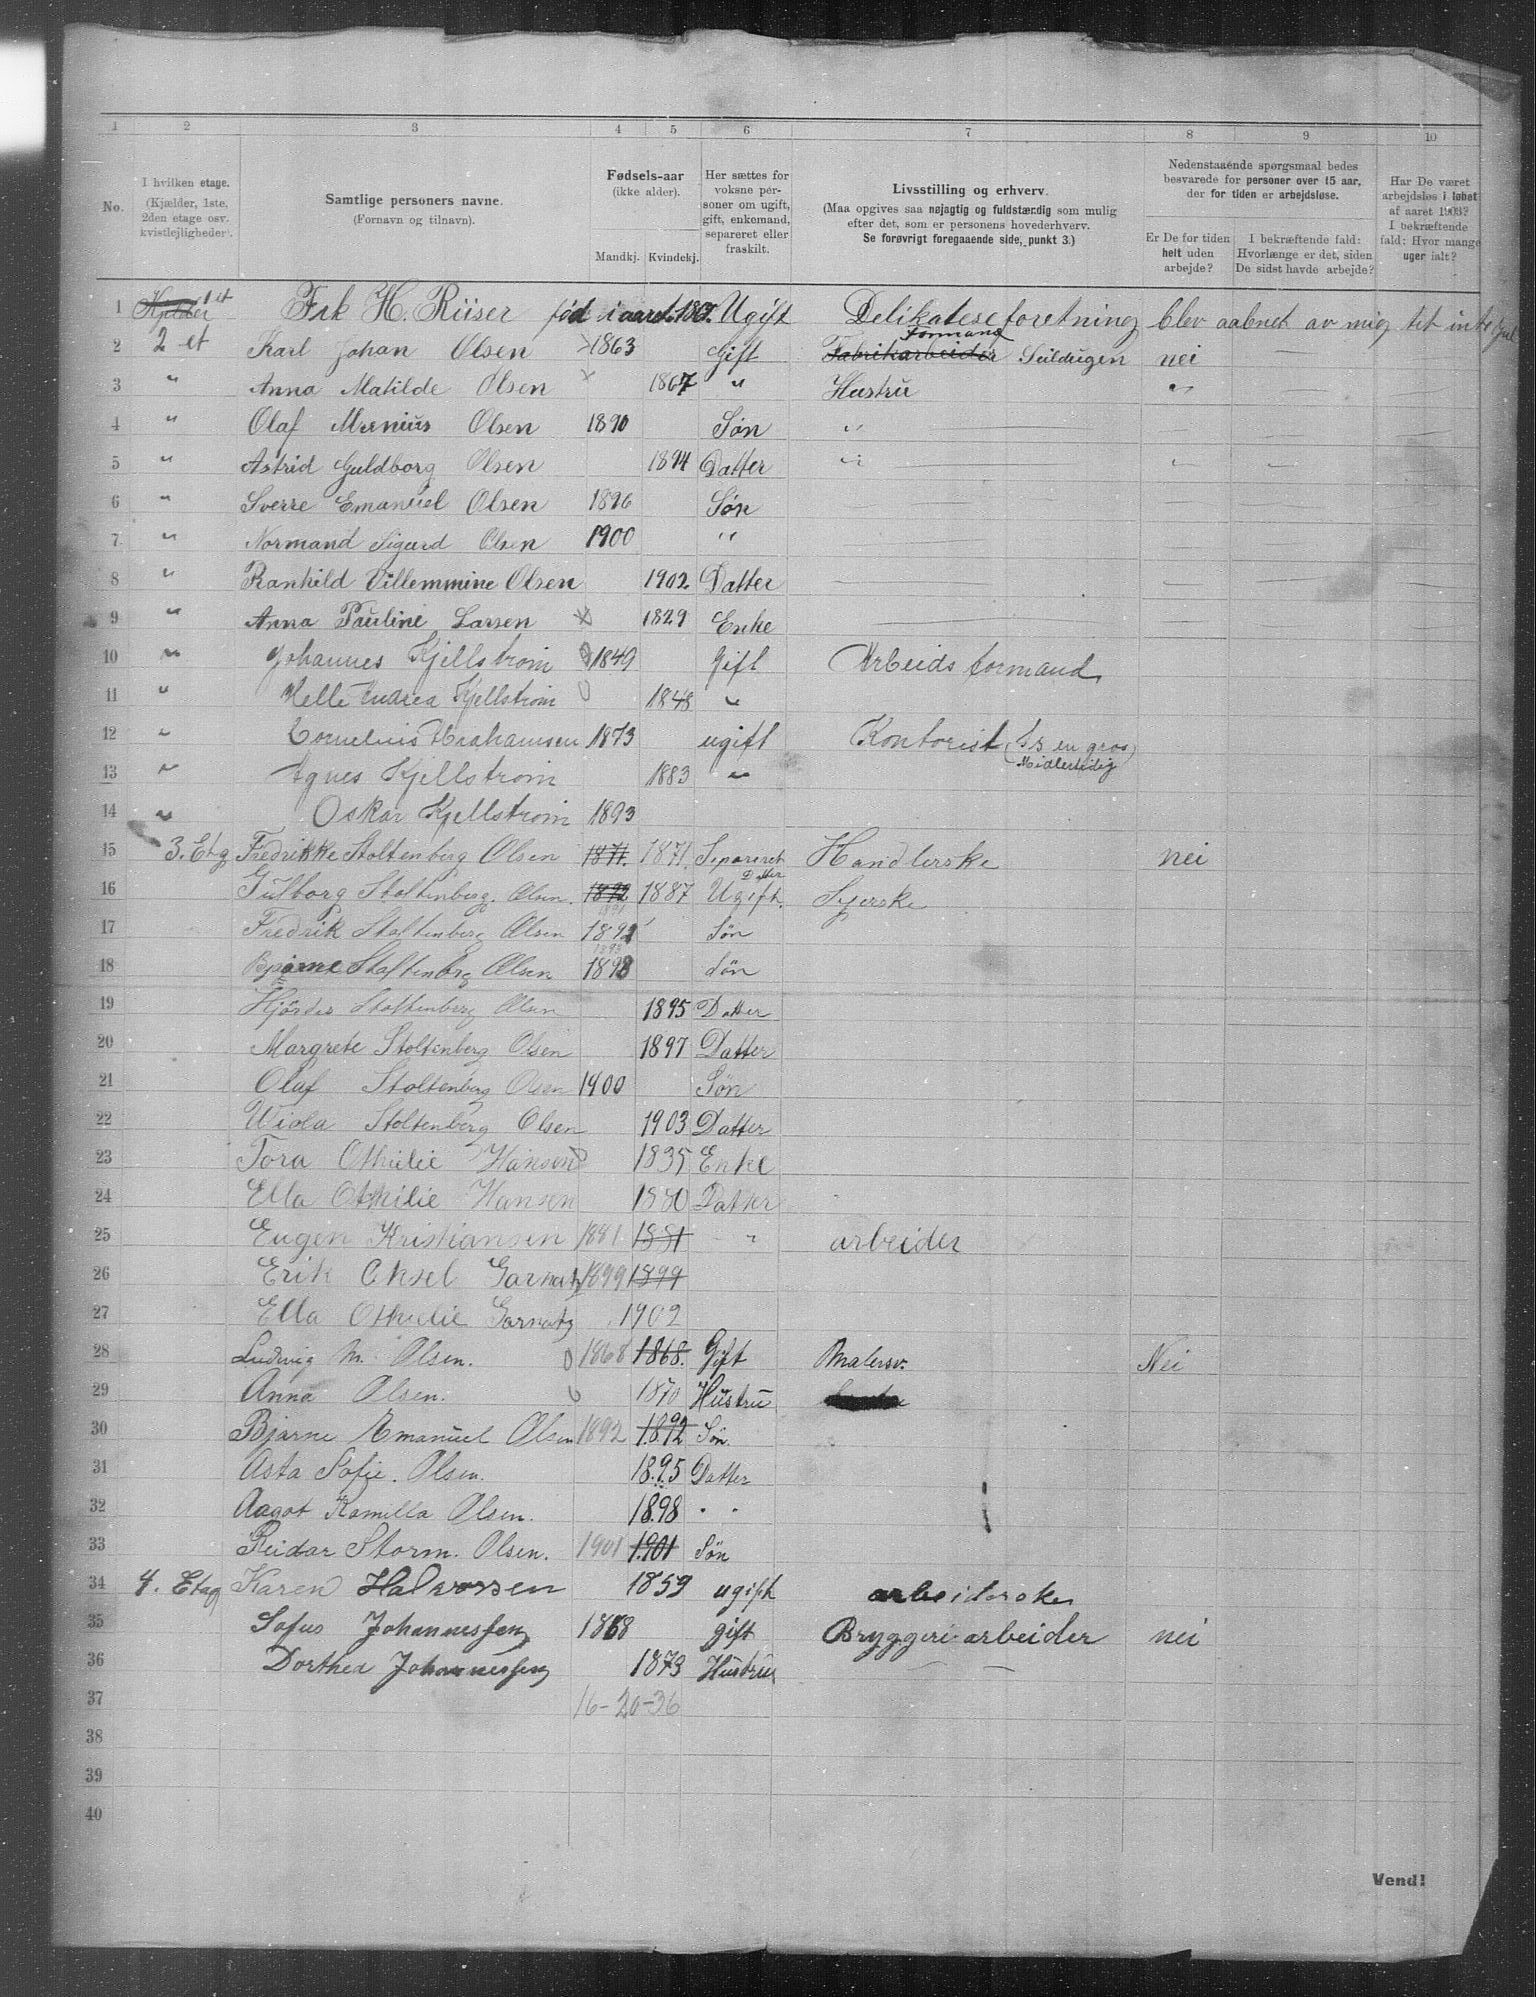 1 2 3 4 5 6 7 8 9 10
No.
I hvilken etage. (Kjælder, 1ste, 2den etage osv. kvistleiligheder).
Samtlige personers navne. (Fornavn og tilnavn).
Fødsels-aar (ikke alder). Mandkj. Kvindekj.
Her sættes for voksne personer om ugift, gift, enkemand, separeret eller fraskilt.
Livsstilling og erhverv. (Maa opgives saa nøjagtig og fuldstændig som mulig efter det, som er personens hovederhverv. Se forøvrigt foregaaende side, punkt 3.)
Nedenstaaende spørgsmaal bedes besvarede for personer over 15 aar, der for tiden er arbejdsløse.
Er De for tiden helt uden arbejde?
I bekræftende fald: Hvorlænge er det, siden De sidst havde arbejde?
Har De været arbejdsløs i løbet af aaret 1903? I bekræftende fald: Hvor mange uger ialt?
1 Kjelder 1 et Frk H. Riiser fød i aaret 180. Ugift Delikateseforetning blev aabnet av mig tit int Jul
2 2 et Karl Johan Olsen 1863 Gift Fabrikarbeider Formand Seildugen nei
3 " Anna Matilde Olsen 1867 " Hustru "
4 " Olaf Olsen 1890 Søn "
5 " Astrid Guldborg Olsen 1894 Datter "
6 " Sverre Emanuel Olsen 1896 Søn
7 " Normand Sigurd Olsen 1900 "
8 " Ranhild Villemmine Olsen 1902 Datter
9 " Anna Pauline Larsen 1829 Enke
10 " Johannes Kjellstrøm 1849 Gift Arbeidsformand
11 " Helle Andrea Kjellstrøm 1848 "
12 " Cornelius Abrahamsen 1873 ugift Kontorist (Br en gros) Midlertidig
13 " Agnes Kjellstrøm 1883 "
14 " Oskar Kjellstrøm 1893
15 3. Etg Fredrikke Stoltenberg Olsen 1871. 1871. Separeret Handlerske nei
16 Gulborg Stoltenberg. Olsen. 1892 1887 Ugift. Datter Syerske
17 Fredrik Stoltenberg Olsen 1891 1892 Søn
18 Bjarne Stoltenberg Olsen 1893 1898 Søn
19 Hjördis Stoltenberg Olsen 1895 Datter
20 Margrete Stoltenberg Olsen 1897 Datter
21 Oluf Stoltenberg Olsen 1900 Søn
22 Wiola Stoltenberg Olsen 1903 Datter
23 Tora Othilie Hansen 1835 Enke
24 Ella Othilie Hansen 1880 Datter
25 Eugen Kristiansen 1881 1881 " arbeider
26 Erik Aksel Garnatz 1899 1899
27 Ella Othilie Garnatz 1902
28 Ludvig M. Olsen. 1868 1868. Gift Malersv. Nei
29 Anna Olsen. 1870 Hustru
30 Bjarne Emanuel Olsen 1892 1892 Søn.
31 Asta Sofie. Olsen. 1895 Datter
32 Aagot Kamilla Olsen. 1898 " "
33 Reidar Storm. Olsen. 1901 1901 Søn
34 4. Etag Karen Halvorsen 1859 ugift arbeiderske
35 Sofus Johannessen 1868 gift Bryggeriarbeider nei
36 Dorthea Johannessen 1873 Hustru
37 16-20-36
38
39
40
Vend!